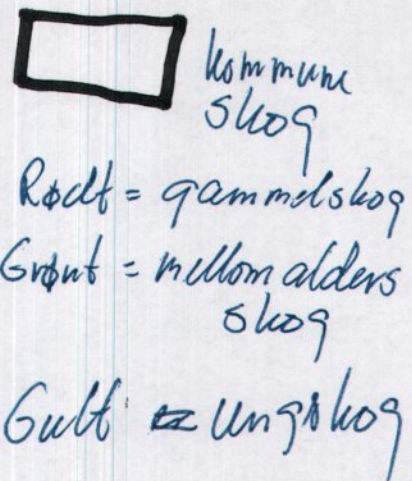 kommune
skog
Rødt = gammelskog
Grønt = mellom alders
skog
Gult = ungskog